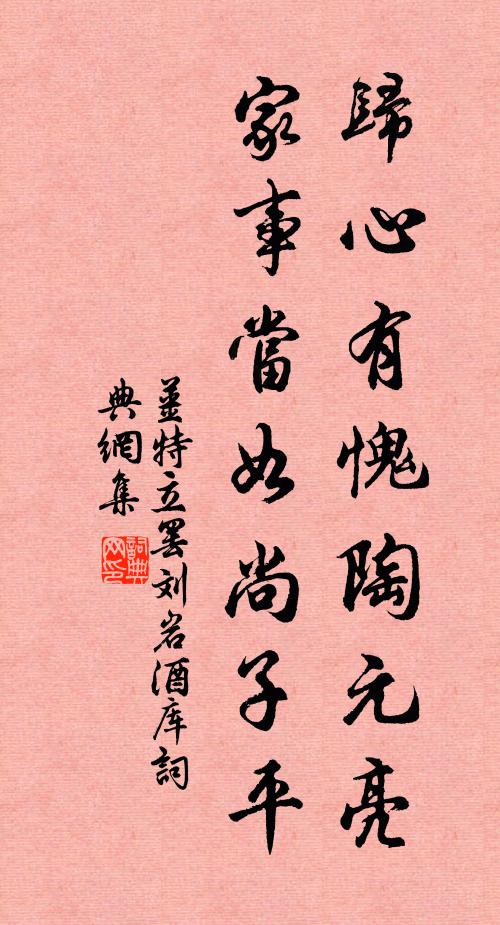 歸心有愧陶元亮
家事當如尚子平
姜特立罢刘岩酒库詞
典網集
詞典
网印